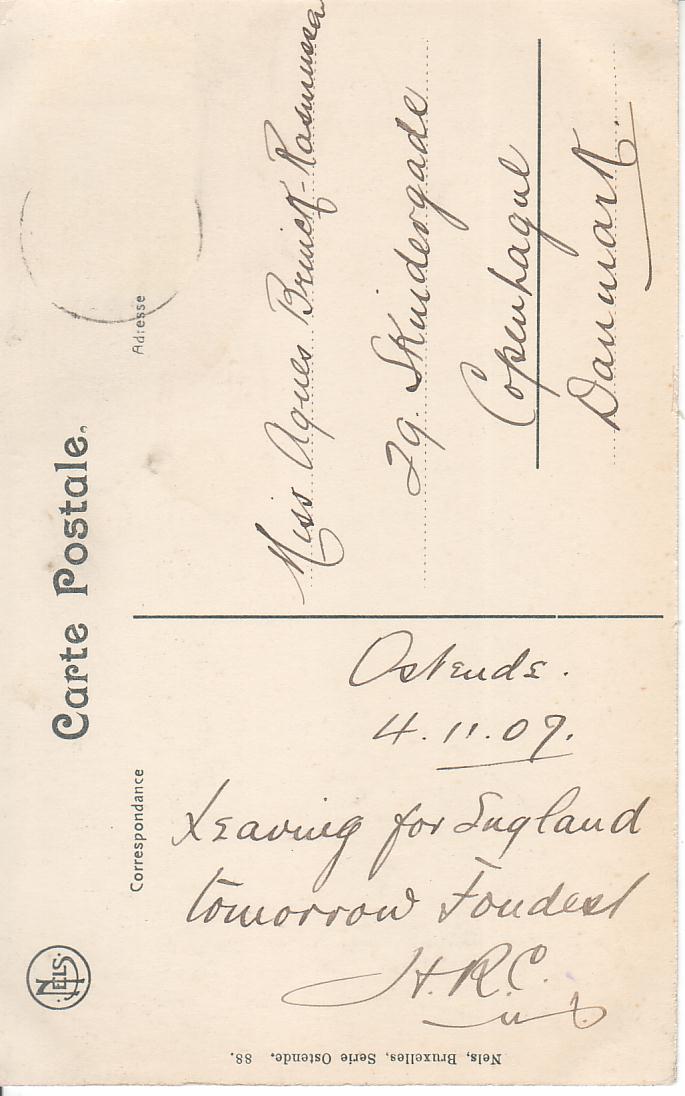 Carte Postale.
Correspondance
Adresse
Ostende.
4.11.09.
Leaving for England
tomorrow Fondest
H.R.C.
Miss Agnes Bruick-Rasmussen
29. Skindergade
Copenhague
Danmark.
NELS
Nels, Bruxelles, Serie Ostende. 88.